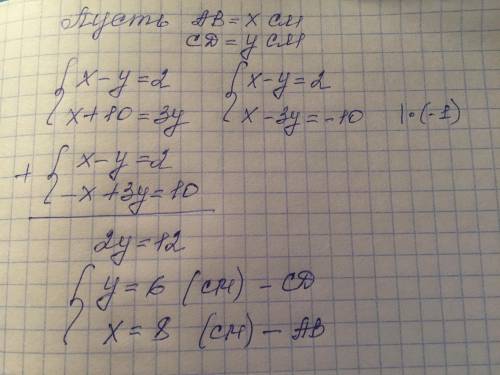 Пусть AB = x см
CD = y см
{ x - y = 2 { x - y = 2
{ x + 10 = 3y { x - 3y = -10 | · (-1)
+ { x - y = 2
{ -x + 3y = 10
2y = 12
{ y = 6 (см) - CD
{ x = 8 (см) - AB